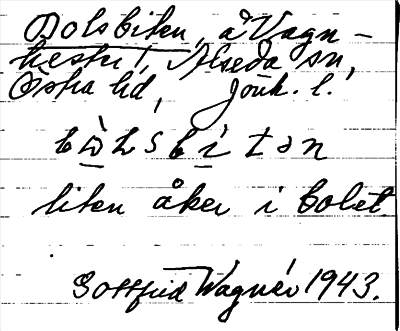 Bolsbiten, å Vagn-
hester, Alseda sn,
Östra hd, Jönk. l.
bòlsbitən
liten åker i bolet.
Gottfrid Wagnér 1943.